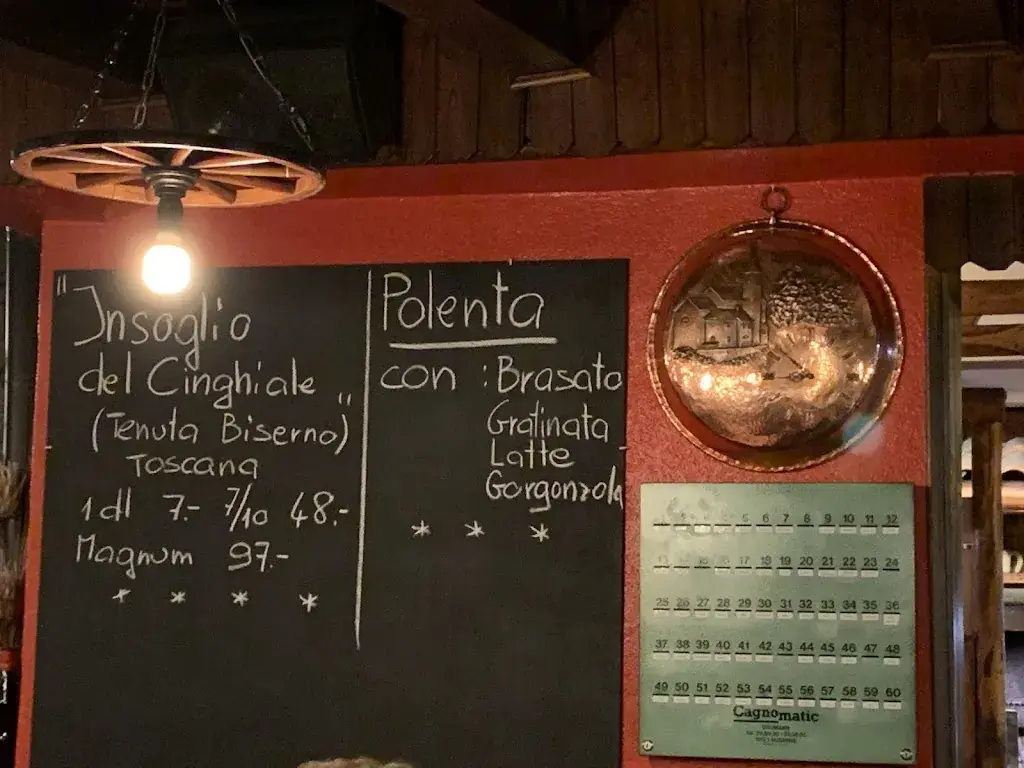 "Insoglio
del Cinghiale"
(Tenuta Biserno)
Toscana
1 dl 7.- 7/10 48.-
Magnum 97.-
* * * *
Polenta
con : Brasato
Gratinata
Latte
Gorgonzola
* * *
5 6 7 8 9 10 11 12
17 18 19 20 21 22 23 24
25 26 27 28 29 30 31 32 33 34 35 36
37 38 39 40 41 42 43 44 45 46 47 48
49 50 51 52 53 54 55 56 57 58 59 60
Cagnomatic